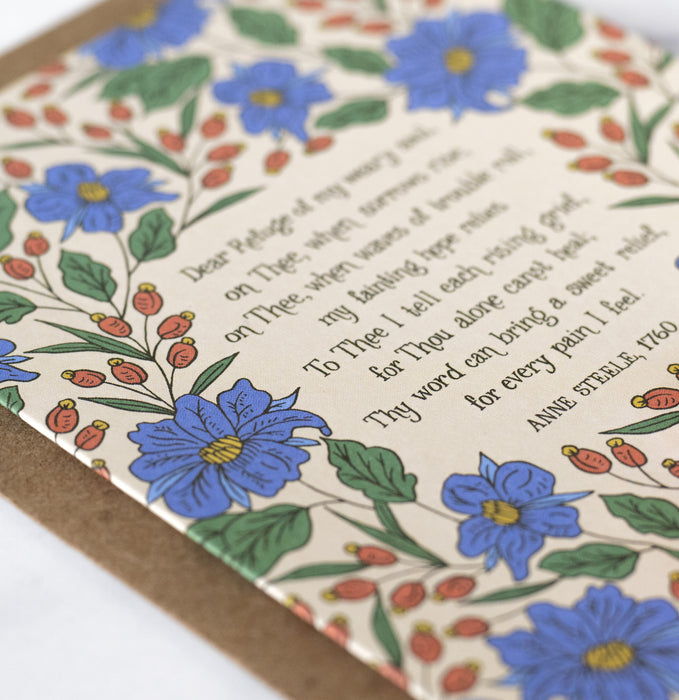 Dear Refuge of my weary soul,
on Thee, when sorrows rise,
on Thee, when waves of trouble roll,
my fainting hope relies
To Thee I tell each rising grief,
for Thou alone canst heal;
Thy word can bring a sweet relief,
for every pain I feel.
ANNE STEELE, 1760